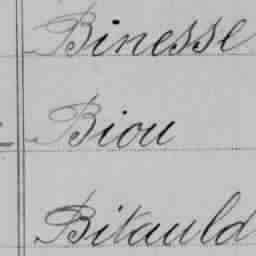 Binesse
Biou
Bitauld